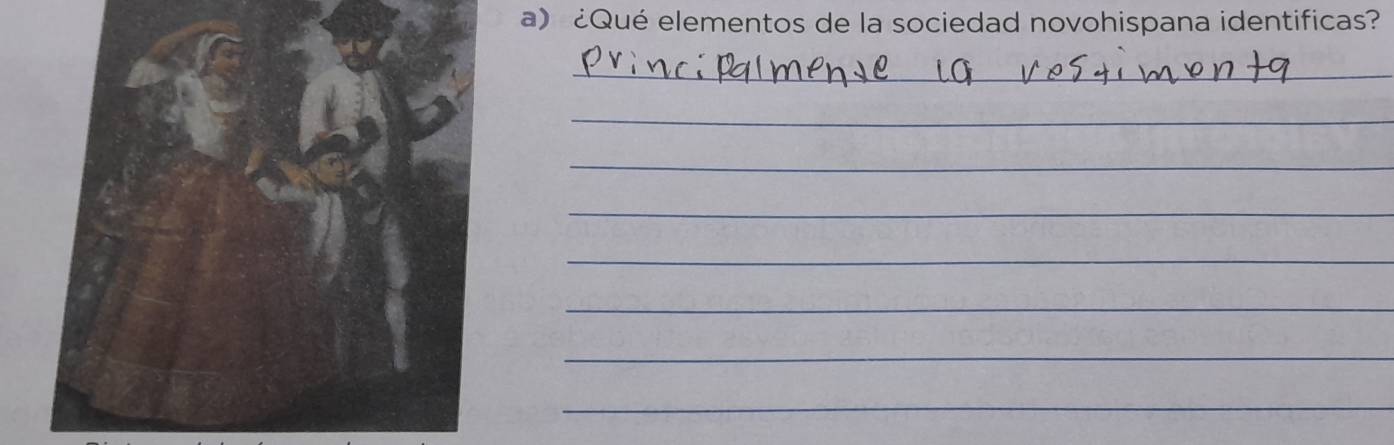 a) ¿Qué elementos de la sociedad novohispana identificas?
Principalmente la vestimenta